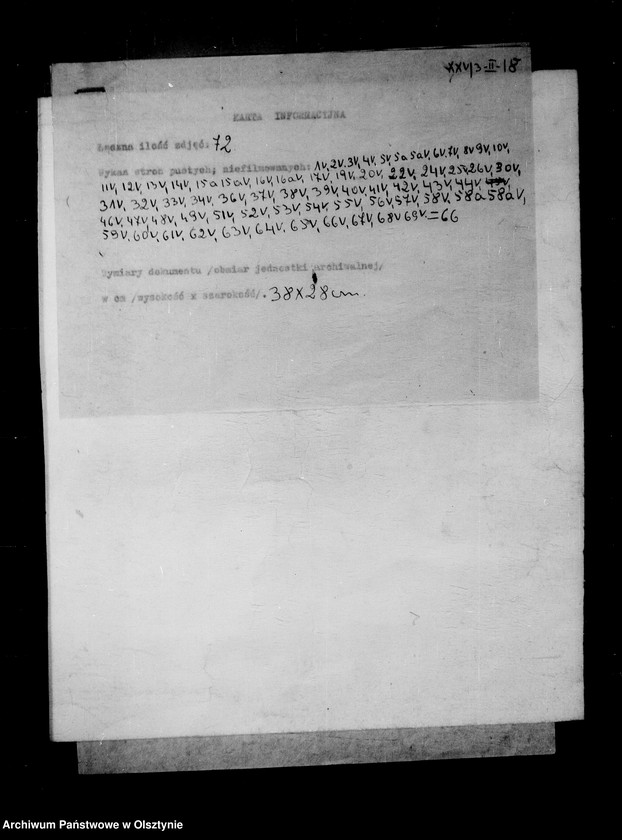 XXV/3-II-18
KARTA INFORMACYJNA
Łączna ilość zdjęć: 72
Wykaz stron pustych, niefilmowanych: 1v, 2v, 3v, 4v, 5v, 5a, 5av, 6v, 7v, 8v, 9v, 10v,
11v, 12v, 13v, 14v, 15a, 15av, 16v, 16av, 17v, 19v, 20v, 22v, 24v, 25v, 26v, 30v,
31v, 32v, 33v, 34v, 36v, 37v, 38v, 39v, 40v, 41v, 42v, 43v, 44v,
46v, 47v, 48v, 49v, 51v, 52v, 53v, 54v, 55v, 56v, 57v, 58v, 58a, 58av,
59v, 60v, 61v, 62v, 63v, 64v, 65v, 66v, 67v, 68v, 69v. = 66
Wymiary dokumentu /obmiar jednostki archiwalnej/
w cm /wysokość x szerokość/. 38 x 28 cm.
Archiwum Państwowe w Olsztynie